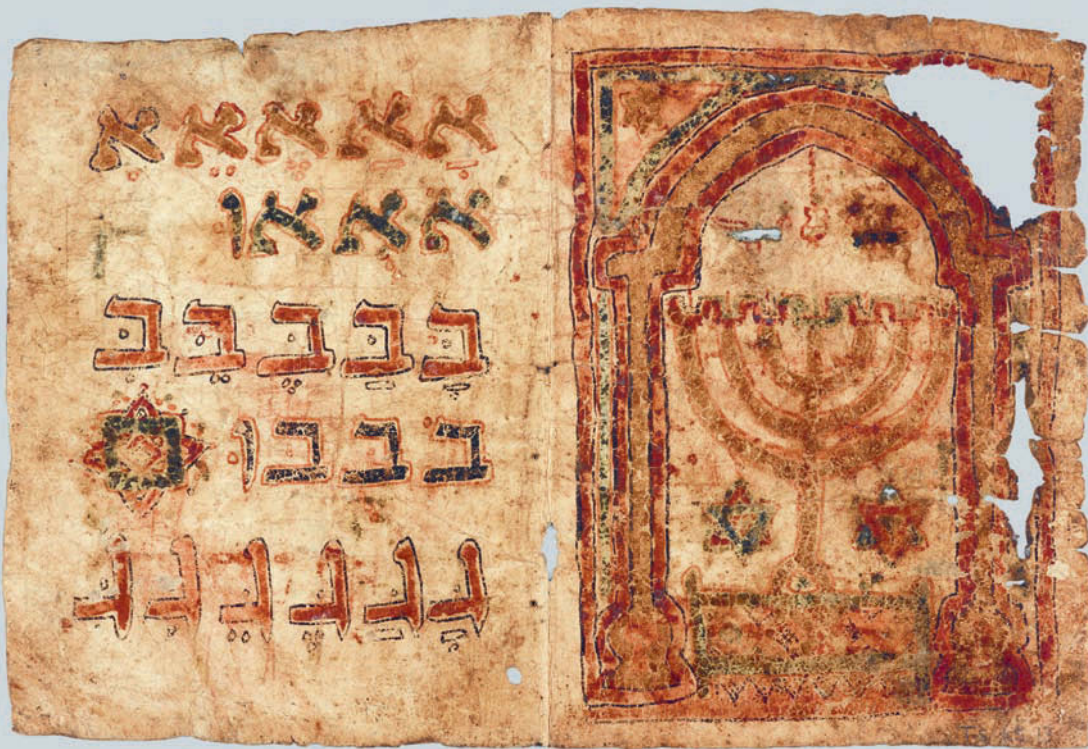 א א א א א
א א או
ב ב ב ב ב
ב ב בו
ג ג ג ג ג ג
T-S K5.13